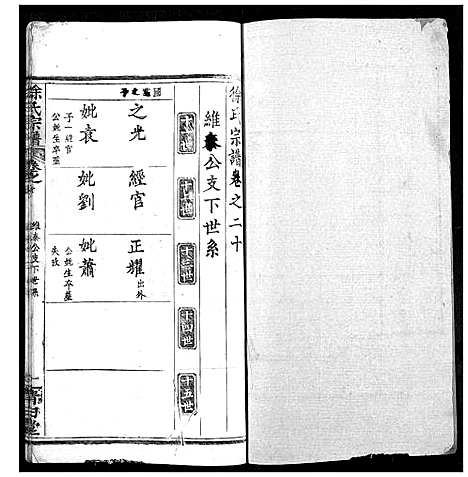 徐氏宗譜卷之二十
維秦公支下世系
十一世
十二世
十三世
十四世
十五世
國富之子
之光
妣袁
子一經官
公妣生卒塟
經官
妣劉
正耀出外
妣蕭
公妣生卒塟
失攷
徐氏宗譜
維秦公支下世系